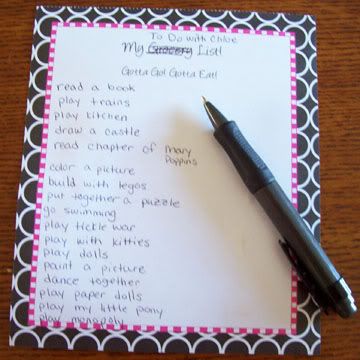 To Do with Chloe
My Grocery List!
Gotta Go! Gotta Eat!
read a book
play trains
play kitchen
draw a castle
read chapter of Mary
Poppins
color a picture
build with legos
put together a puzzle
go swimming
play tickle war
play with kitties
play dolls
paint a picture
dance together
play paper dolls
play my little pony
play monopoly